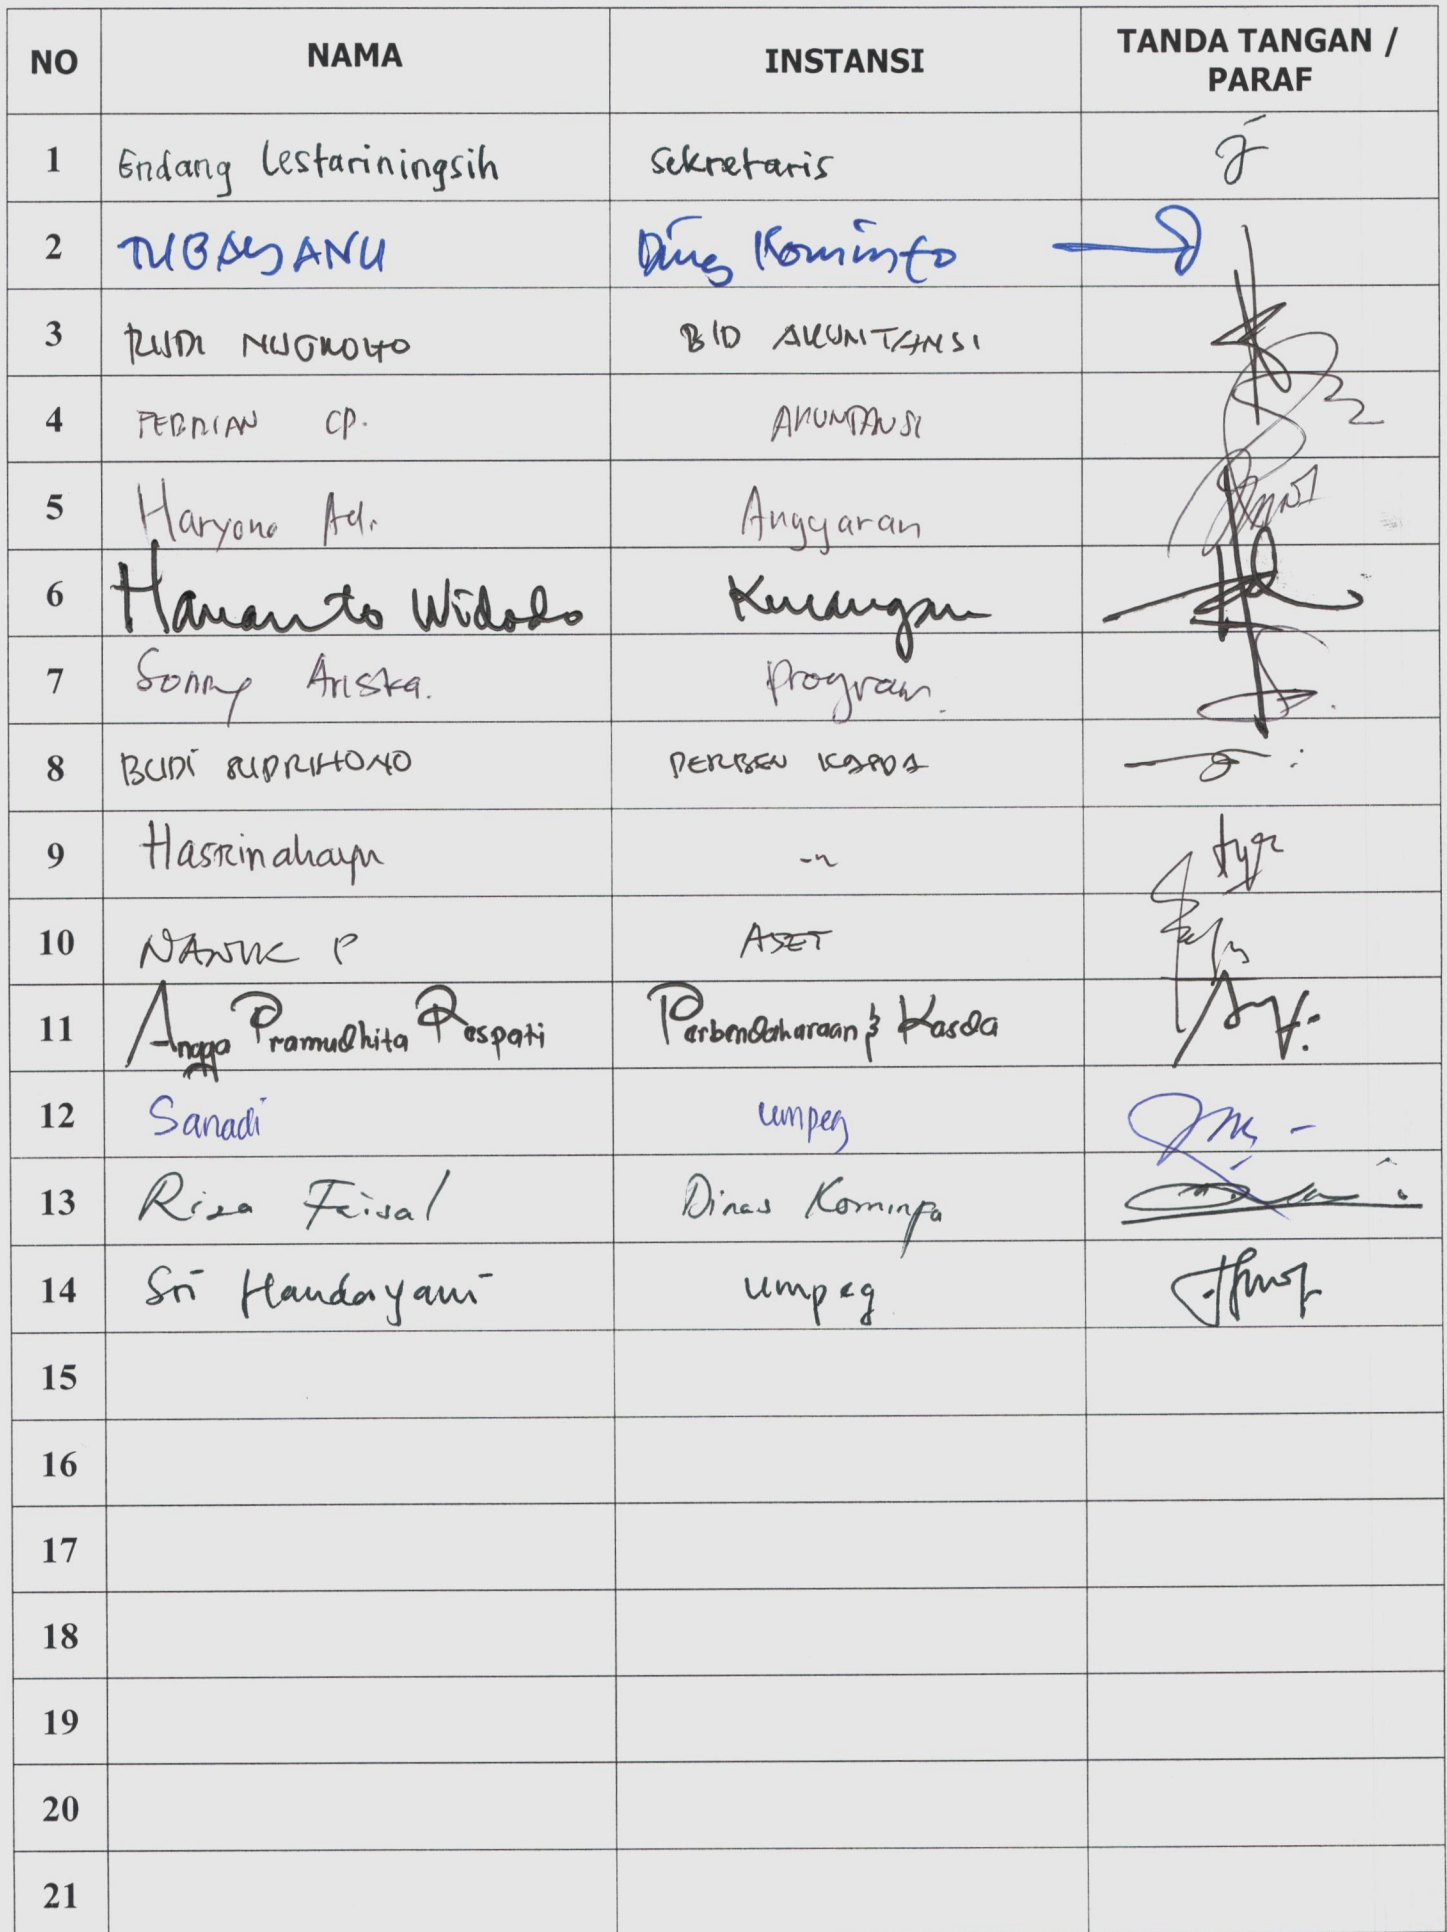 NO NAMA INSTANSI TANDA TANGAN /
PARAF
1 Endang Lestariningsih Sekretaris
2 Dinas Kominfo
3 RUDI NUGROHO BID AKUNTANSI
4 FEBRIAN CP. AKUNTANSI
5 Haryono Adi. Anggaran
6 Hananto Widodo Keuangan
7 Sonny Ariska. Program.
8 BUDI SUPRIHONO PERBEN KASDA
9
10 P ASET
11 Angga Pramudhita Respati Perbendaharaan & Kasda
12 Sanadi umpeg
13 Riza Faisal Dinas Kominfo
14 Sri Handayani umpeg
15
16
17
18
19
20
21